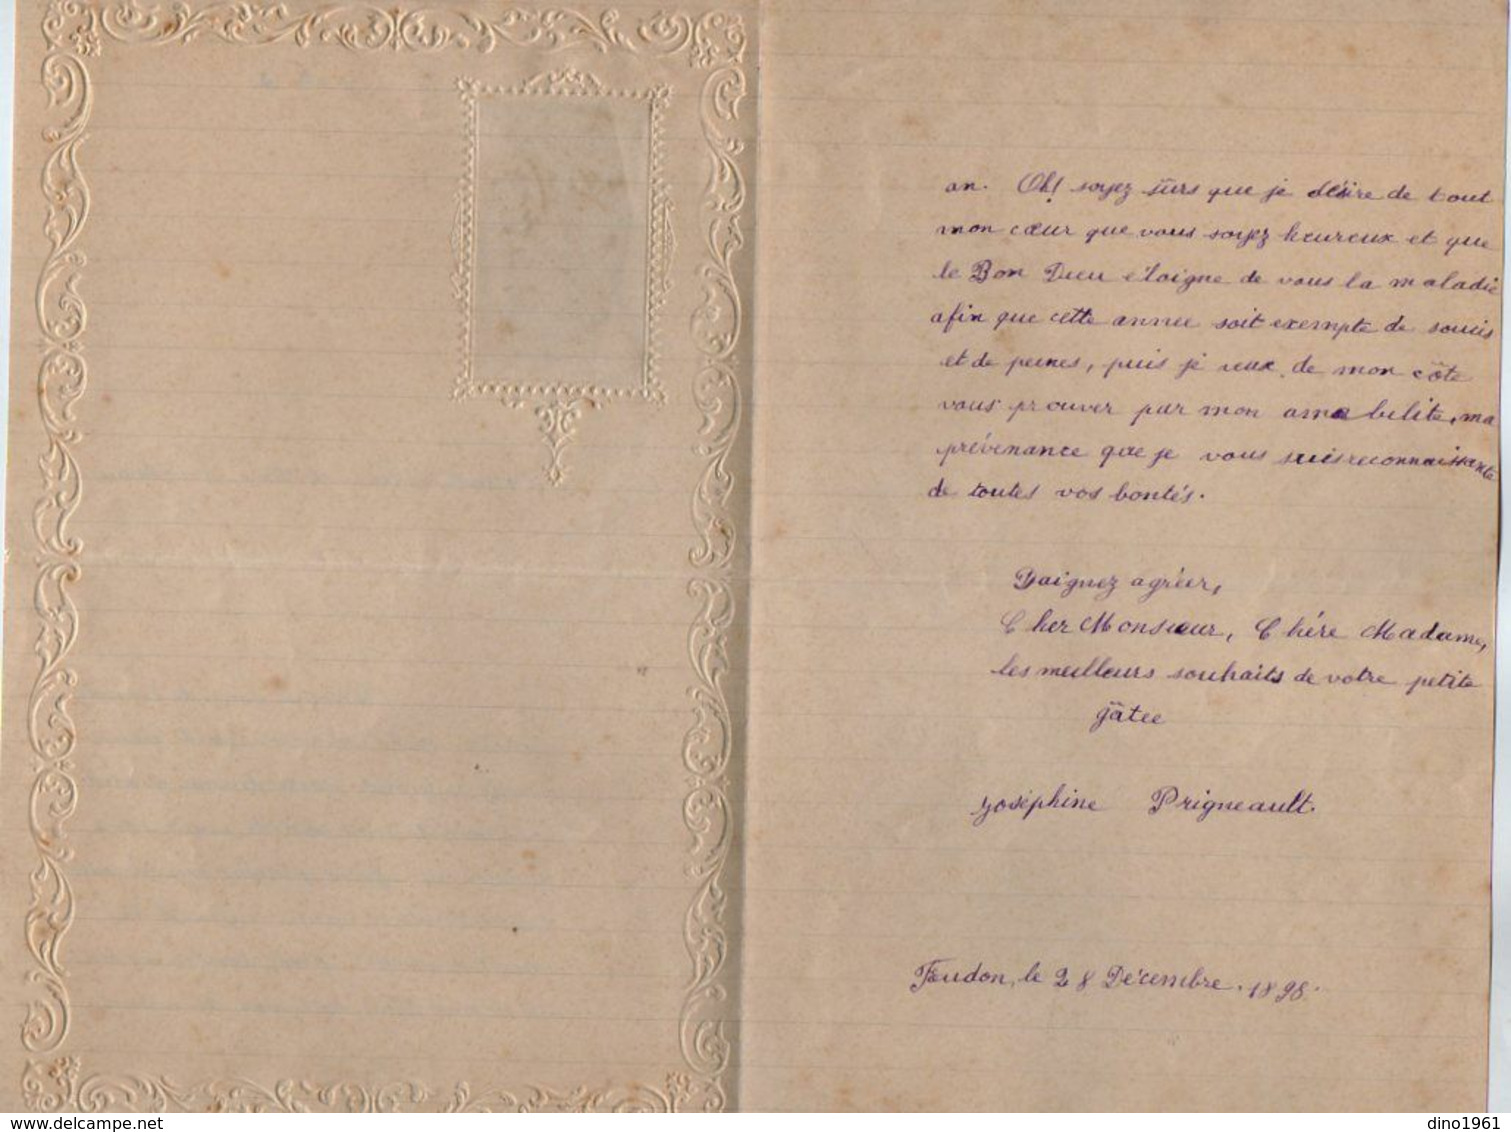 an. Oh! soyez sûrs que je désire de tout
mon cœur que vous soyez heureux et que
le Bon Dieu éloigne de vous la maladie
afin que cette année soit exempte de soucis
et de peines, puis je veux de mon côté
vous prouver par mon amabilité, ma
prévenance que je vous suis reconnaissante
de toutes vos bontés.
Daignez agréer,
Cher Monsieur, Chére Madame,
les meilleurs souhaits de votre petite
gâtée
Joséphine Prigneault.
Feudon, le 28 Décembre. 1898.
delcampe.net
dino1961